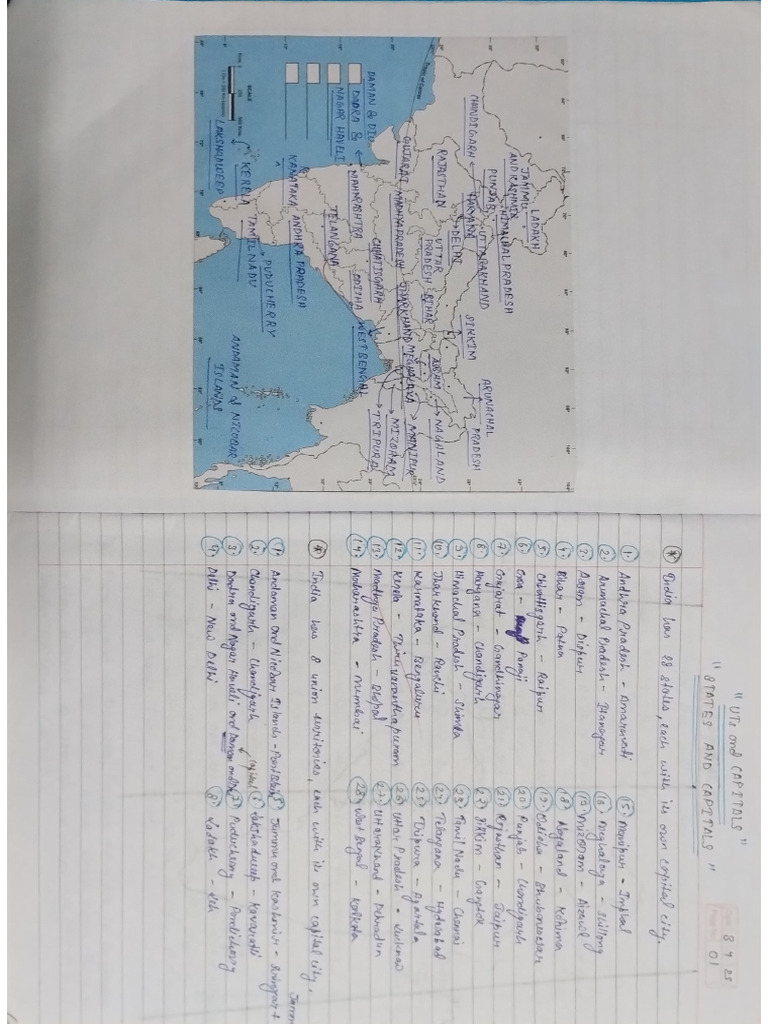 "UTs and CAPITALS"
"STATES AND CAPITALS"
8 9 25
01
* India has 28 states, each with its own capital city.
1. Andhra Pradesh - Amaravati
2. Arunachal Pradesh - Itanagar
3. Assam - Dispur
4. Bihar - Patna
5. Chhattisgarh - Raipur
6. Goa - Panaji
7. Gujarat - Gandhinagar
8. Haryana - Chandigarh
9. Himachal Pradesh - Shimla
10. Jharkhand - Ranchi
11. Karnataka - Bengaluru
12. Kerala - Thiruvananthapuram
13. Madhya Pradesh - Bhopal
14. Maharashtra - Mumbai
15. Manipur - Imphal
16. Meghalaya - Shillong
17. Mizoram - Aizawl
18. Nagaland - Kohima
19. Odisha - Bhubaneswar
20. Punjab - Chandigarh
21. Rajasthan - Jaipur
22. Sikkim - Gangtok
23. Tamil Nadu - Chennai
24. Telangana - Hyderabad
25. Tripura - Agartala
26. Uttar Pradesh - Lucknow
27. Uttarakhand - Dehradun
28. West Bengal - Kolkata
* India has 8 union territories, each with its own capital city.
1. Andaman and Nicobar Islands - Port Blair
2. Chandigarh - Chandigarh
3. Dadra and Nagar Haveli and Daman and Diu
capital
4. Delhi - New Delhi
5. Jammu and Kashmir - Srinagar +
Jammu
6. Lakshadweep - Kavaratti
7. Puducherry - Pondicherry
8. Ladakh - Leh
LADAKH
JAMMU
AND KASHMIR
HIMACHAL PRADESH
PUNJAB
CHANDIGARH
HARYANA
UTTARAKHAND
DELHI
RAJASTHAN
UTTAR
PRADESH
BIHAR
SIKKIM
ARUNACHAL
PRADESH
ASSAM
NAGALAND
MANIPUR
MEGHALAYA
MIZORAM
TRIPURA
JHARKHAND
WEST BENGAL
GUJARAT
MADHYA PRADESH
CHHATISGARH
ODITHA
MAHARASHTRA
DAMAN & DIU
DADRA &
NAGAR HAVELI
TELANGANA
KANATAKA
ANDHRA PRADESH
PUDUCHERRY
KERELA
TAMIL NADU
LAKSHADWEEP
ANDAMAN & NICOBAR
ISLANDS
Tropic of Cancer
SCALE